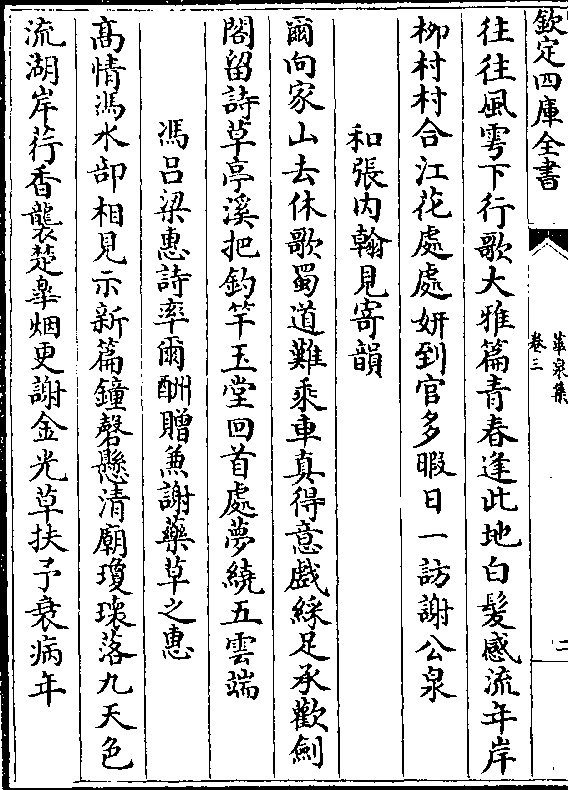 欽定四庫全書
華泉集
卷三
二
往往風雩下行歌大雅篇青春逢此地白髮感流年岸
柳村村合江花處處妍到官多暇日一訪謝公泉
和張內翰見寄韻
爾向家山去休歌蜀道難乘車真得意戲綵足承歡劍
閣留詩草亭溪把釣竿玉堂回首處夢繞五雲端
馮呂梁惠詩率爾酬贈兼謝藥草之惠
高情馮水部相見示新篇鐘磬懸清廟瓊瓌落九天色
流湖岸荇香襲楚皋烟更謝金光草扶予衰病年